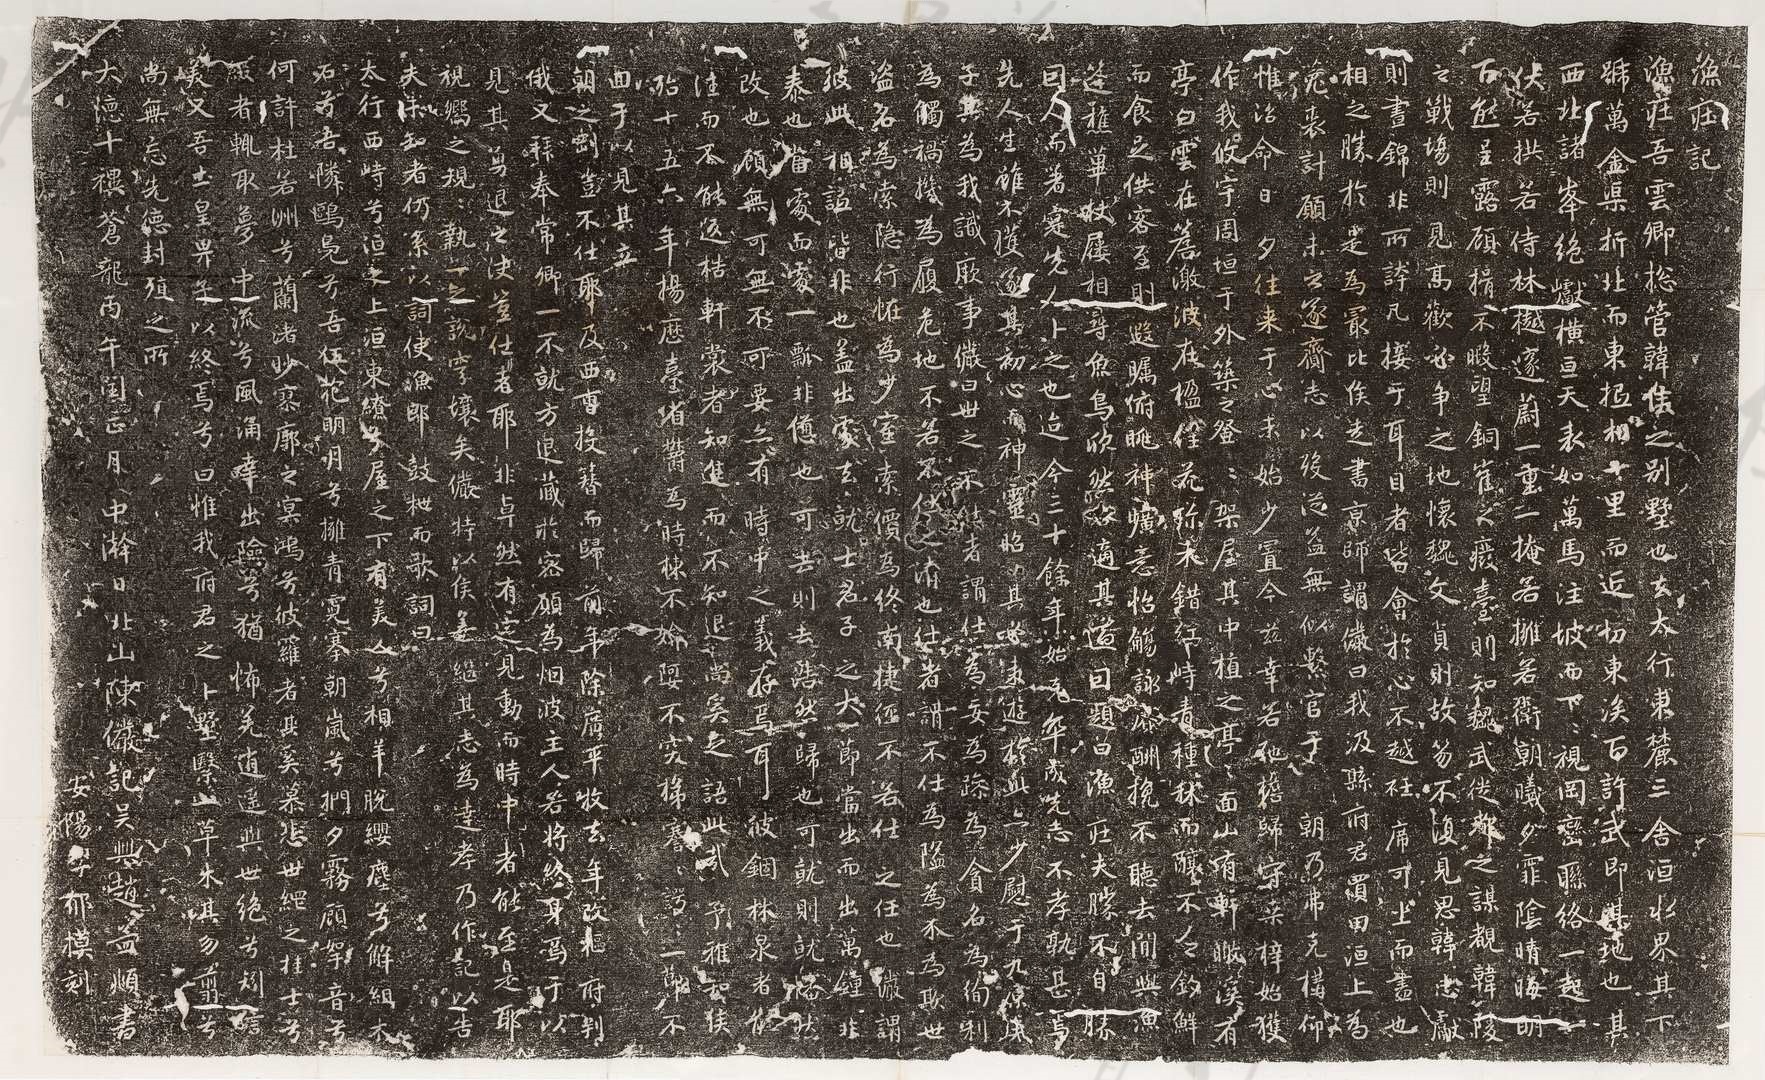 漁莊記
漁莊吾雲卿總管韓侯之別墅也去太行東麓三舍洹水界其下
號萬金渠折北而東抵相十里而近切東涘百許武即其地也其
西北諸峯絶巘橫亘天表如萬馬注坡而下視岡巒聯絡一起一
伏若拱若侍林樾邃蔚一重二掩若擁若衛朝曦夕霏陰晴晦明
百態呈露顧揖不暇望銅雀之廢臺則知魏武從都之謀覩韓陵
之戰場則見高歡必爭之地懷魏文貞則故笏不復見思韓忠獻
則晝錦非所誇凡接于耳目者皆會於心不越衽席可坐而盡也
相之勝於是為最比侯走書京師謂儼曰我汲縣府君買田洹上為
菟裘計願未之遂齎志以歿迨益無似繫官于朝乃弗克構仰
惟治命日夕往来于心未始少置今茲幸若弛檐歸守桑梓始獲
作我攸宇周垣于外築之登登架屋其中植之亭亭面山有軒瞰溪有
亭白雲在簷澂波在楹怪花珍木錯紅峙青種秫而釀不亽釣鮮
而食足供客至則遐矚俯眺神曠意怡觴詠獻酬挽不聽去閒與漁
逢樵單杖屨相尋魚鳥欣然故適其適因題曰漁莊夫勝不自勝
因人而著寔先人卜之也迨今三十餘年始克卒成先志不孝孰甚焉
先人生雖不獲遂其初心而神靈昭昭其必來遊於此亦少慰于九原焉
子其為我識厥事儼曰世之不仕者謂仕為妄為躁為貪名為徇利
為觸禍機為履危地不若不仕之清也仕者謂不仕為隘為不為欺世
盜名為索隱行恠為少室索價為終南捷徑不若仕之任也儼謂
彼此相詬皆非也盖出處去就士君子之大節當出而出萬鐘非
泰也當處而處一瓢非儉也可去則去浩然歸也可就則就幡然
改也顧無可無不可要亦有時中之義存焉耳彼錮林泉者能
往而不能返梏軒裳者知進而不知退尚奚足語此哉予雅知侯
殆十五六年揚歷臺省鬱為時棟不婾阿不突梯謇謇諤諤一節不
回于以見其立
朝之剴豈不仕耶及西曹投簪而歸前年除廣平牧去年改樞府判
俄又拜奉常卿一不就方退藏於密願為烟波主人若將終身焉于以
見其勇退之決豈仕者耶非卓然有定見動而時中者能至是耶
視嚮之規規執一之說霄壤矣儼特以侯善繼其志為達孝乃作記以告
夫未知者仍系以詞使漁郎鼓枻而歌詞曰
太行西峙兮洹之上洹東繚兮屋之下有美人兮相羊脫纓塵兮解組木
石兮吾隣鷗鳧兮吾伍花明月兮擁青霓搴朝嵐兮捫夕霧顧跫音兮
何許杜若洲兮蘭渚眇寥廓之冥鴻兮彼羅者其奚慕悲世綱之挂士兮
醒者輒取夢中流兮風涌幸出險兮猶怖羌逍遥與世絶兮矧語
美又吾土皇畀矣以終焉兮曰惟我府君之卜墅繄山草木其勿翦兮
尚無忘先德封殖之所
大德十禩蒼龍丙午閏正月中澣日北山陳儼記吳興趙孟頫書
安陽李郁模刻